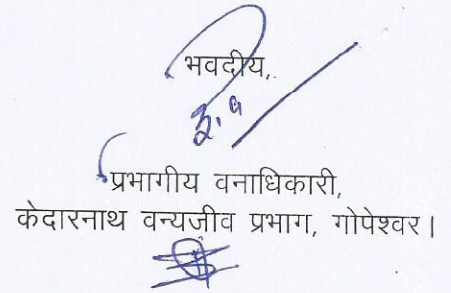 भवदीय,
प्रभागीय वनाधिकारी,
केदारनाथ वन्यजीव प्रभाग, गोपेश्वर।